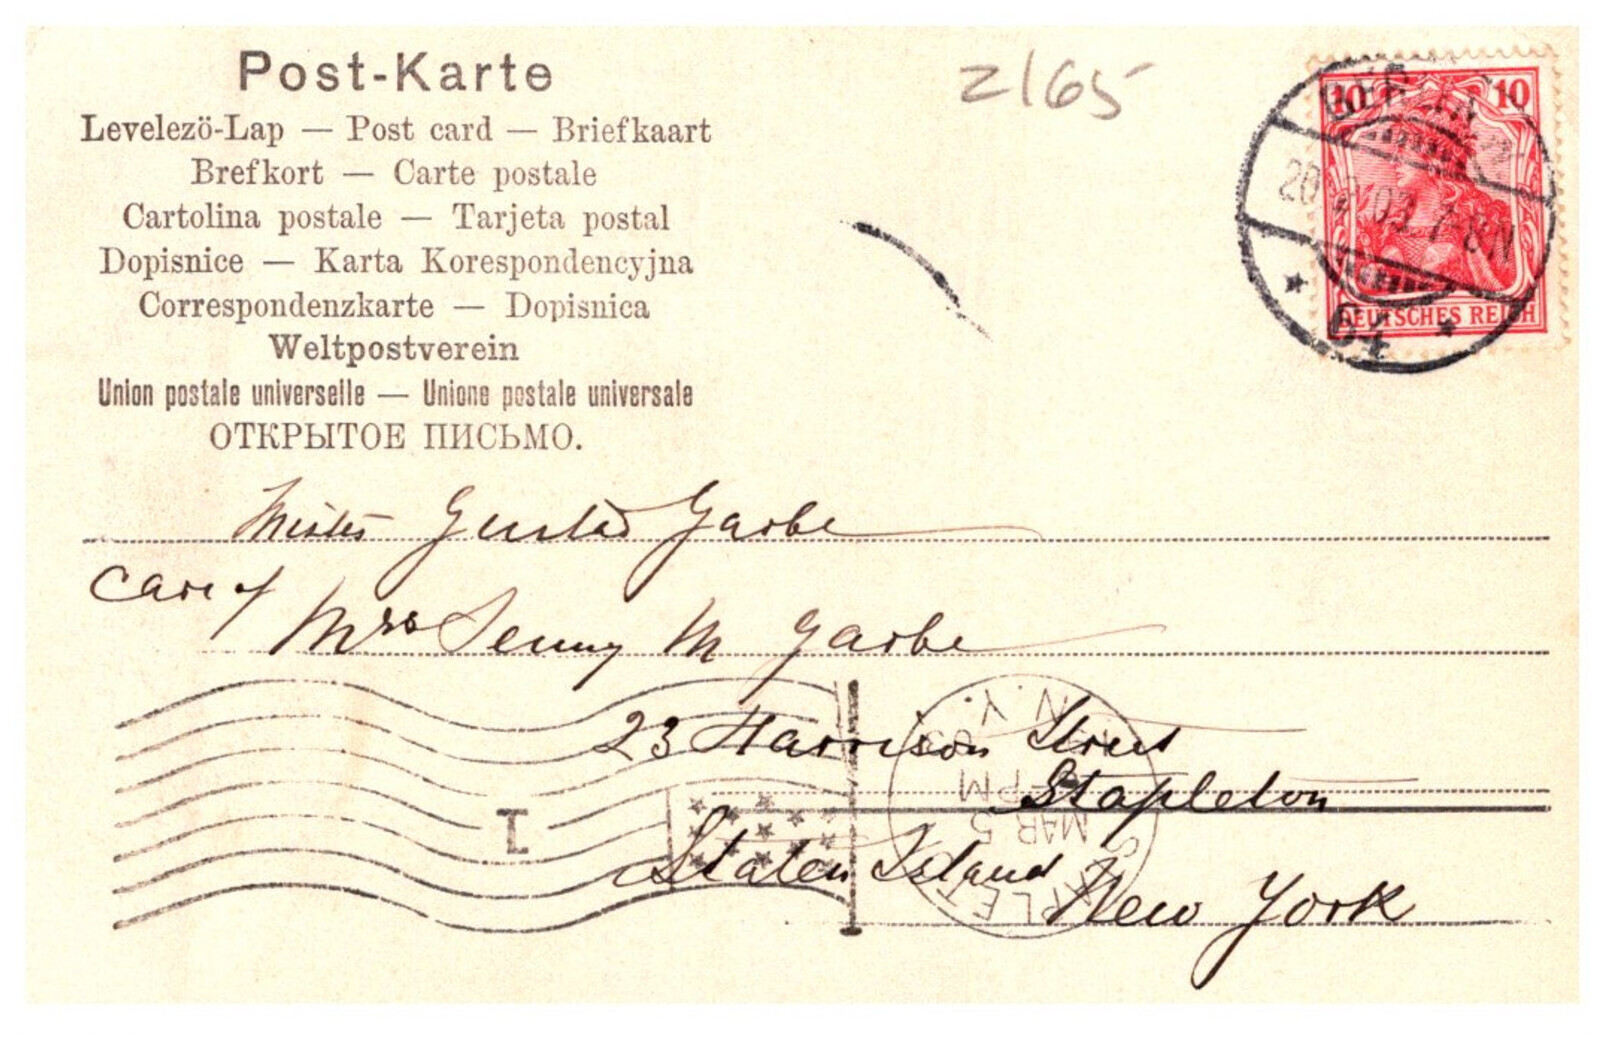 Post-Karte
Levelezö-Lap — Post card — Briefkaart
Brefkort — Carte postale
Cartolina postale — Tarjeta postal
Dopisnice — Karta Korespondencyjna
Correspondenzkarte — Dopisnica
Weltpostverein
Union postale universelle — Unione postale universale
ОТКРЫТОЕ ПИСЬМО.
2165
10 10
DEUTSCHES REICH
BERLIN
20 03 7-8N
64
Mister Gustav Garbe
Care of
Mrs Jenny M Garbe
23 Harrison Street
Stapleton
Staten Island
New York
1
N.Y.
PM
MAR 5